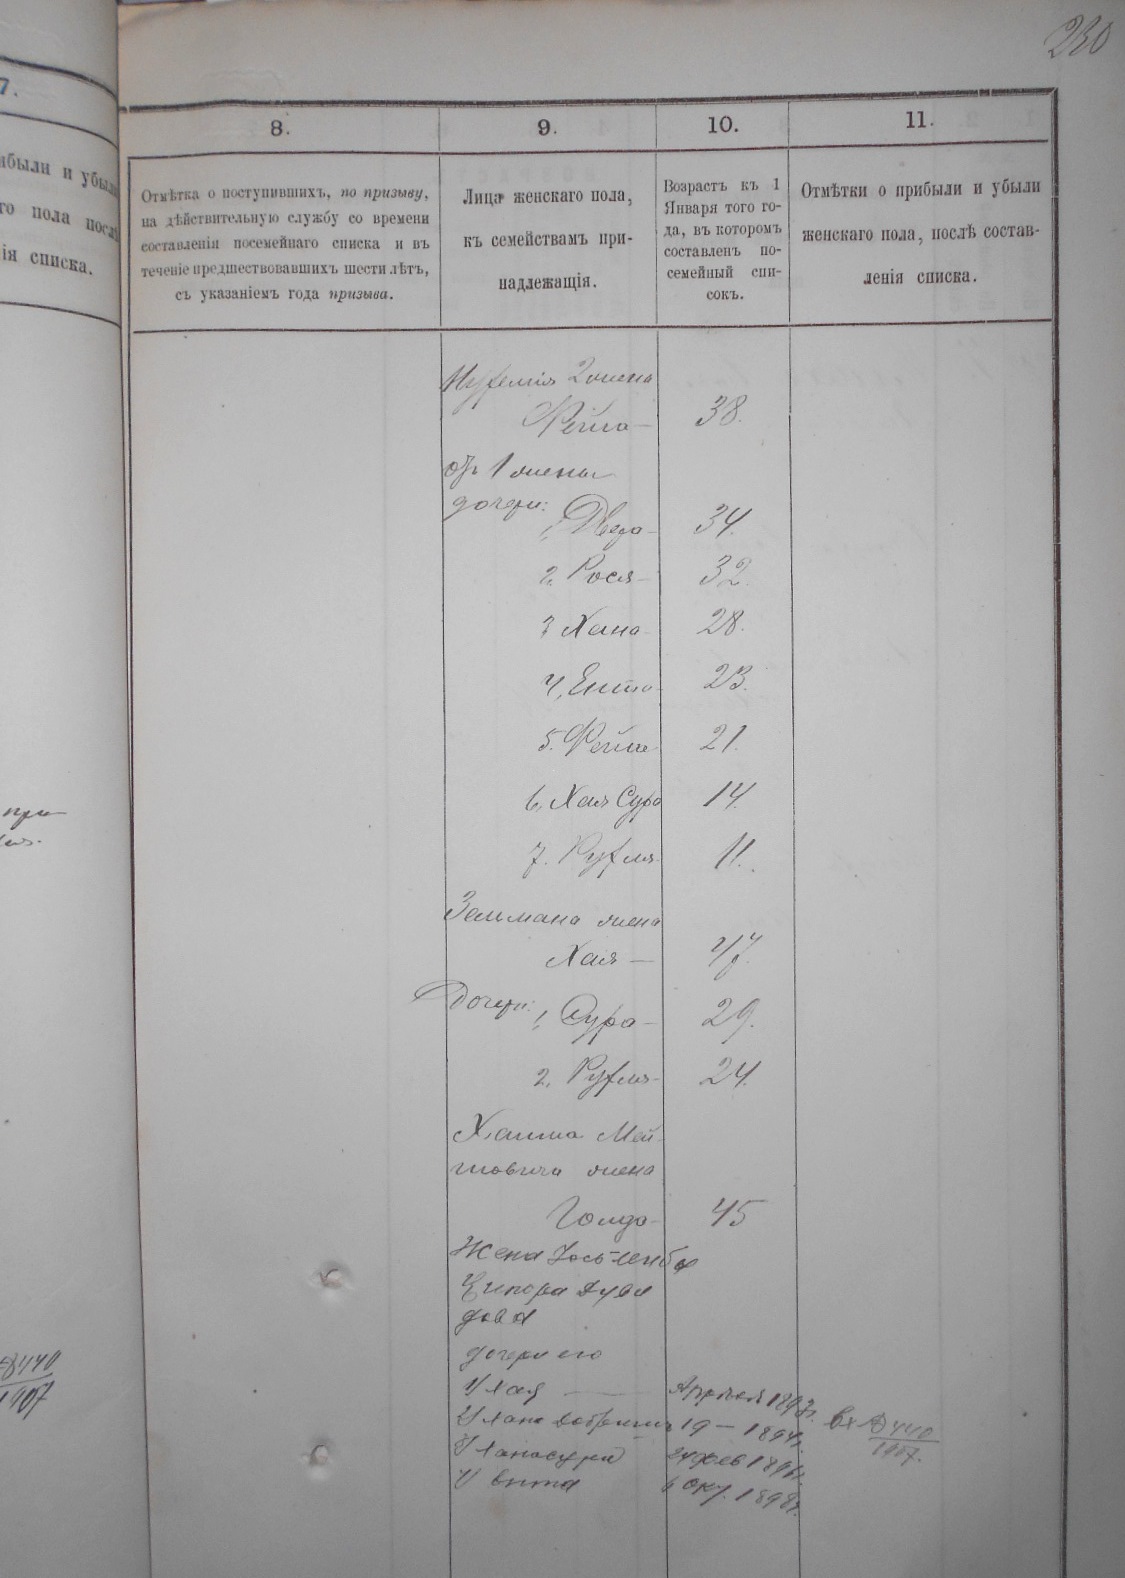 230
7.
8.
9.
10.
11.
ибыли и убыли
го пола послѣ
ія списка.
Отмѣтка о поступившихъ, по призыву,
на дѣйствительную службу со времени
составленія посемейнаго списка и въ
теченіе предшествовавшихъ шести лѣтъ,
съ указаніемъ года призыва.
Лица женскаго пола,
къ семействамъ при-
надлежащія.
Возрастъ къ 1
Января того го-
да, въ которомъ
составленъ по-
семейный спи-
сокъ.
Отмѣтки о прибыли и убыли
женскаго пола, послѣ состав-
ленія списка.
2 жена
Фейга — 38.
отъ 1 жены
дочери:
1, Двера — 34.
2, Рося — 32.
3 Хана 28.
4, Ента 23.
5. Фейга 21.
6, Хая Сура 14.
7. Рухля 11.
Залмана жена
Хая — 47.
Дочери:
1, Сура — 29.
2, Рухля — 24.
Хаима Мей-
жена
Голда — 45
Жена Іось-Лейбы
Ципора Дуви
дова
дочери его
1/ Хая — 1893г.
2/ Хана 19 — 1894г.
3/ Ханасура 24 фев 1896г.
4/ Ента 6 окт. 1898г.
вх № 440
1907.
при
№ 440
1907